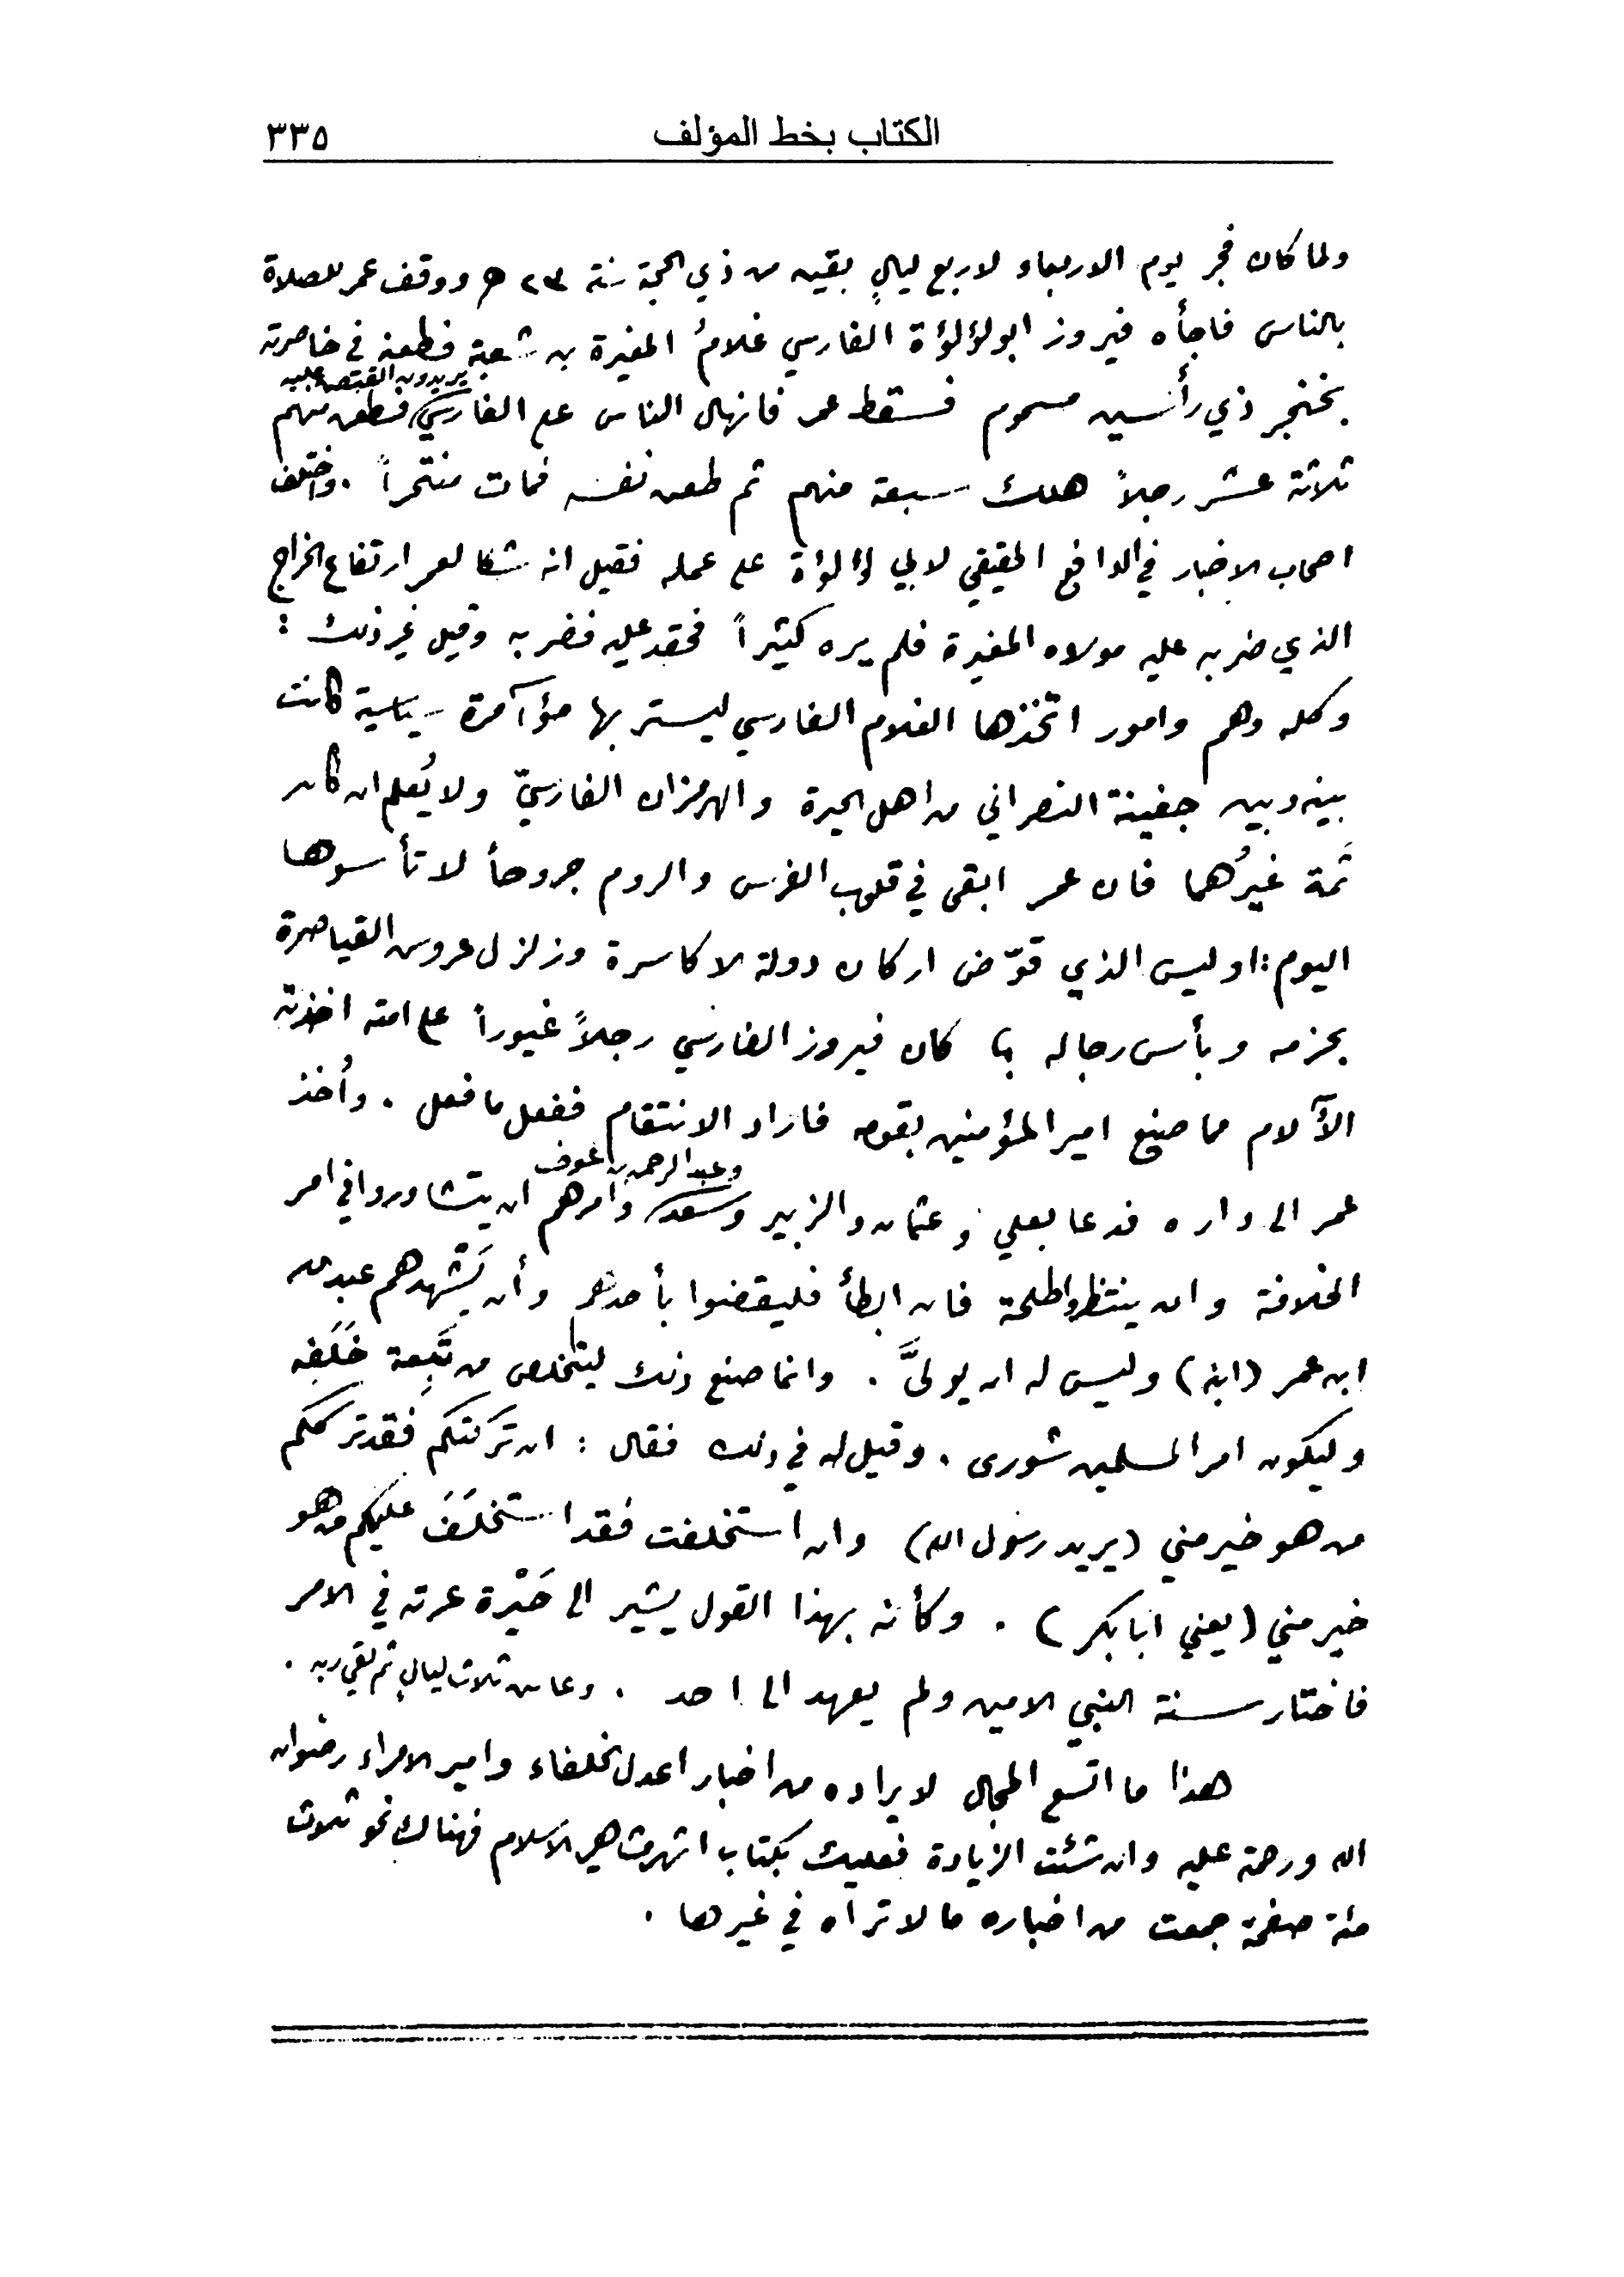 الكتاب بخط المؤلف ٣٣٥
ولما كان فجر يوم الاربعاء لاربع ليالٍ بقين من ذي الحجة سنة ٢٣ هـ ووقف عمر للصلاة
بالناس فاجأه فيروز ابو لؤلؤة الفارسي غلامُ المغيرة بن شعبة فطعنه في خاصرته
يريدون القبض عليه
بخنجر ذي رأسين مسموم فسقط عمر فانهال الناس على الفارسي فطعن منهم
ثلاثة عشر رجلاً هلك سبعة منهم ثم طعن نفسه فمات منتحراً . واختلف
اصحاب الاخبار في الدافع الحقيقي لابي لؤلؤة على عمله فقيل انه شكا لعمر ارتفاع الخراج
الذي ضربه عليه مولاه المغيرة فلم يره كثيراً فحقد عليه فضربه وقيل غير ذلك :
وكله وهم وامور اتخذها الغلام الفارسي ليستر بها مؤآمرة سياسية كانت
بينه وبين جفينة النصراني من اهل الحيرة والهرمزان الفارسيّ ولا يُعلم ان كان
ثَمة غيرُهما فان عمر ابقى في قلوب الفرس والروم جروحاً لا تأسوها
اليوم : او ليس الذي قوّض اركان دولة الاكاسرة وزلزل عروس القياصرة
بحزمه وبأس رجاله ؟ كان فيروز الفارسي رجلاً غيوراً على امته اخذته
الآلام مما صنع امير المؤمنين بقومه فاراد الانتقام ففعل ما فعل . وأُخذ
وعبد الرحمن بن عوف
عمر الى داره فدعا بعلي وعثمان والزبير وسعد وأمرهم ان يتشاوروا في امر
الخلافة وان ينتظروا طلحة فان ابطأ فليقضوا بأحدهم وأن يَشْهدهم عبد الله
ابن عمر (ابنه) وليس له ان يولىَّ . وانما صنع ذلك ليتخلص من تَبِعة خَلَفه
وليكون امر المسلمين شورى . وقيل له في ذلك فقال : ان تَركتكم فقد ترككم
من هو خير مني (يريد رسول الله) وان استخلفت فقد استخلَفَ عليكم من هو
خير مني (يعني ابا بكر) . وكأنه بهذا القول يشير الى حَيْرة عرته في الامر
فاختار سنة النبي الامين ولم يعهد الى احد . وعاش ثلاث ليالٍ ثم لقي ربه .
هذا ما اتسع المجال لايراده من اخبار اعدل الخلفاء وامير الامراء رضوان
الله ورحمة عليه وان شئت الزيادة فعليك بكتاب اشهر مشاهير الاسلام فهناك نحو ثلاث
مئة صفحة جمعت من اخباره ما لا تراه في غيرها .